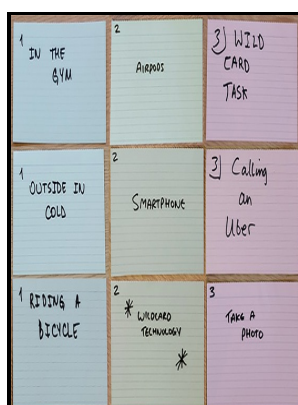 1
IN THE
GYM
2
AIRPODS
3) WILD
CARD
TASK
1
OUTSIDE IN
COLD
2
SMARTPHONE
3) Calling
an
Uber
1 RIDING A
BICYCLE
2
* WILDCARD
TECHNOLOGY
*
3
TAKE A
PHOTO